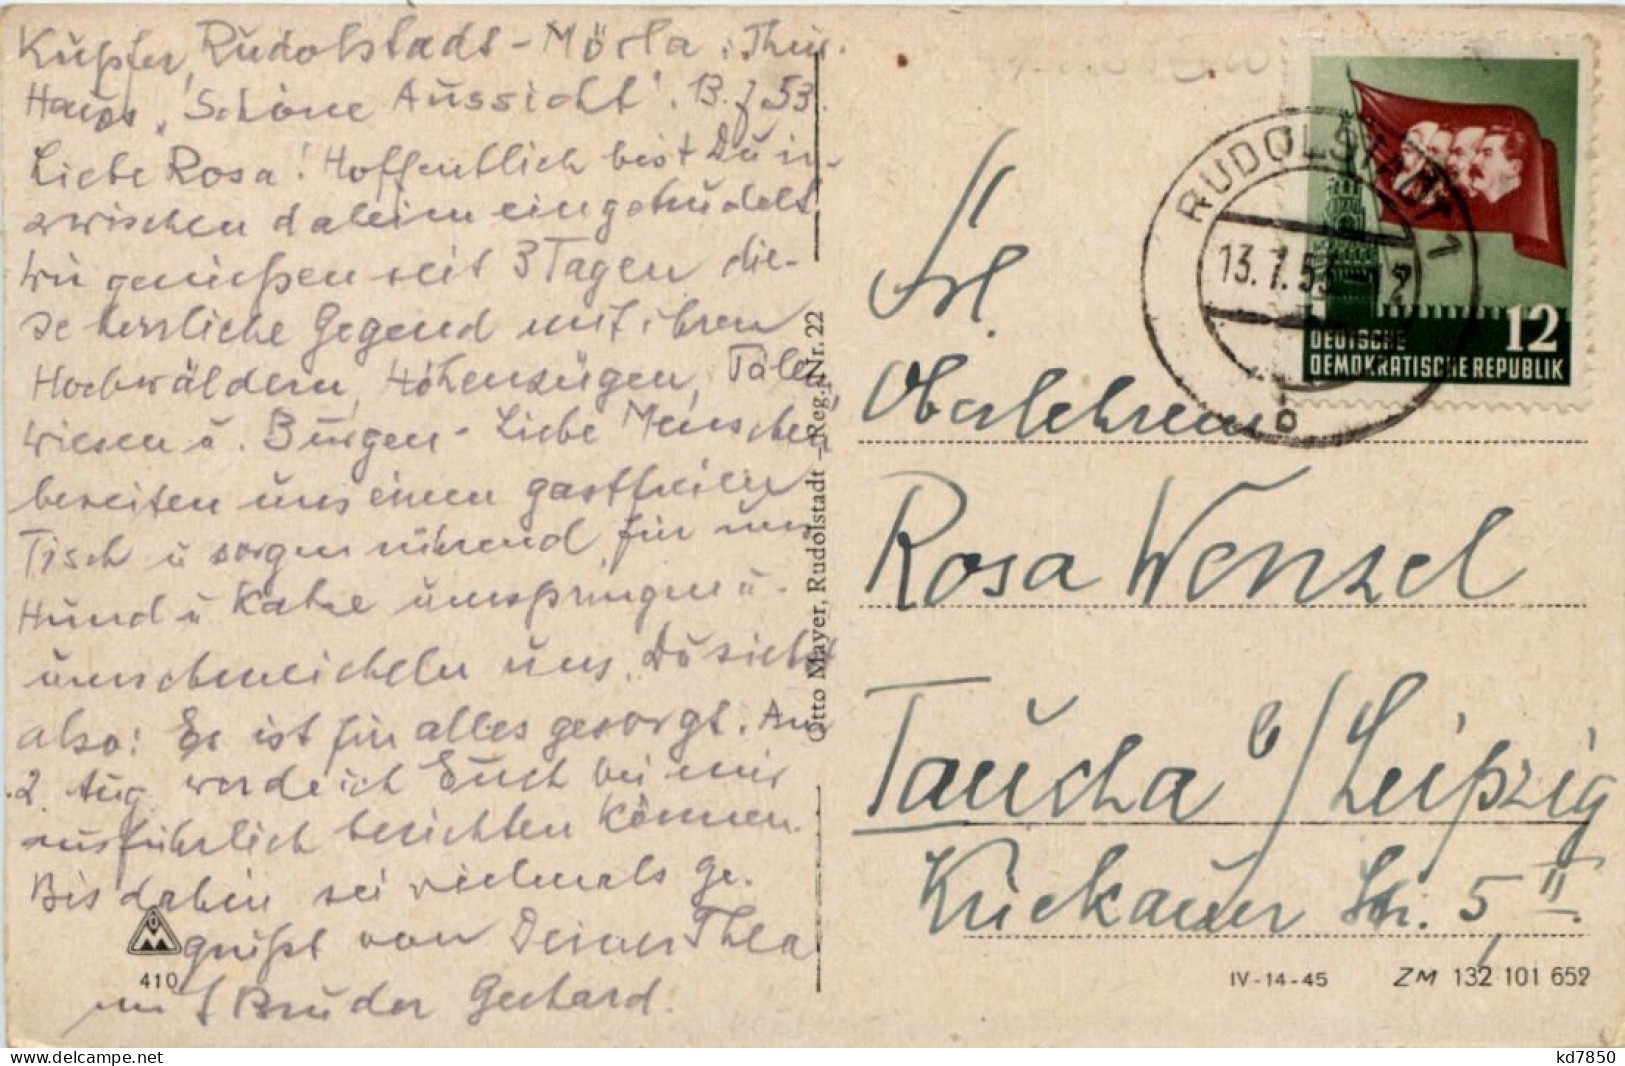 Kupfer, Rudolstadt-Mörla i. Thür.
Haus "Schöne Aussicht". 13.7.53.
Liebe Rosa! Hoffentlich bist Du in-
zwischen daheim eingetrudelt.
Wir genießen seit 3 Tagen die-
se herrliche Gegend mit ihren
Hochwäldern, Höhenzügen, Täler,
Wiesen u. Burgen. Liebe Menschen
bereiten uns einen gastfreien
Tisch u sorgen rührend für uns
Hund u Katze umspringen u.
umschmeicheln uns. Du siehst
also: Es ist für alles gesorgt. Am
2. Aug. werde ich Euch bei mir
ausführlich berichten können.
Bis dahin sei vielmals ge-
grüßt von Deiner Thea
mit Bruder Gerhard.
410
Otto Mayer, Rudolstadt – Reg.-Nr. 22
RUDOLSTADT 1
13.7.53
b
12
DEUTSCHE
DEMOKRATISCHE REPUBLIK
Frl.
Oberlehrerin
Rosa Wenzel
Taucha b/Leipzig
Kriekauer Str. 5 II.
IV-14-45 ZM 132 101 652
www.delcampe.net
kd7850